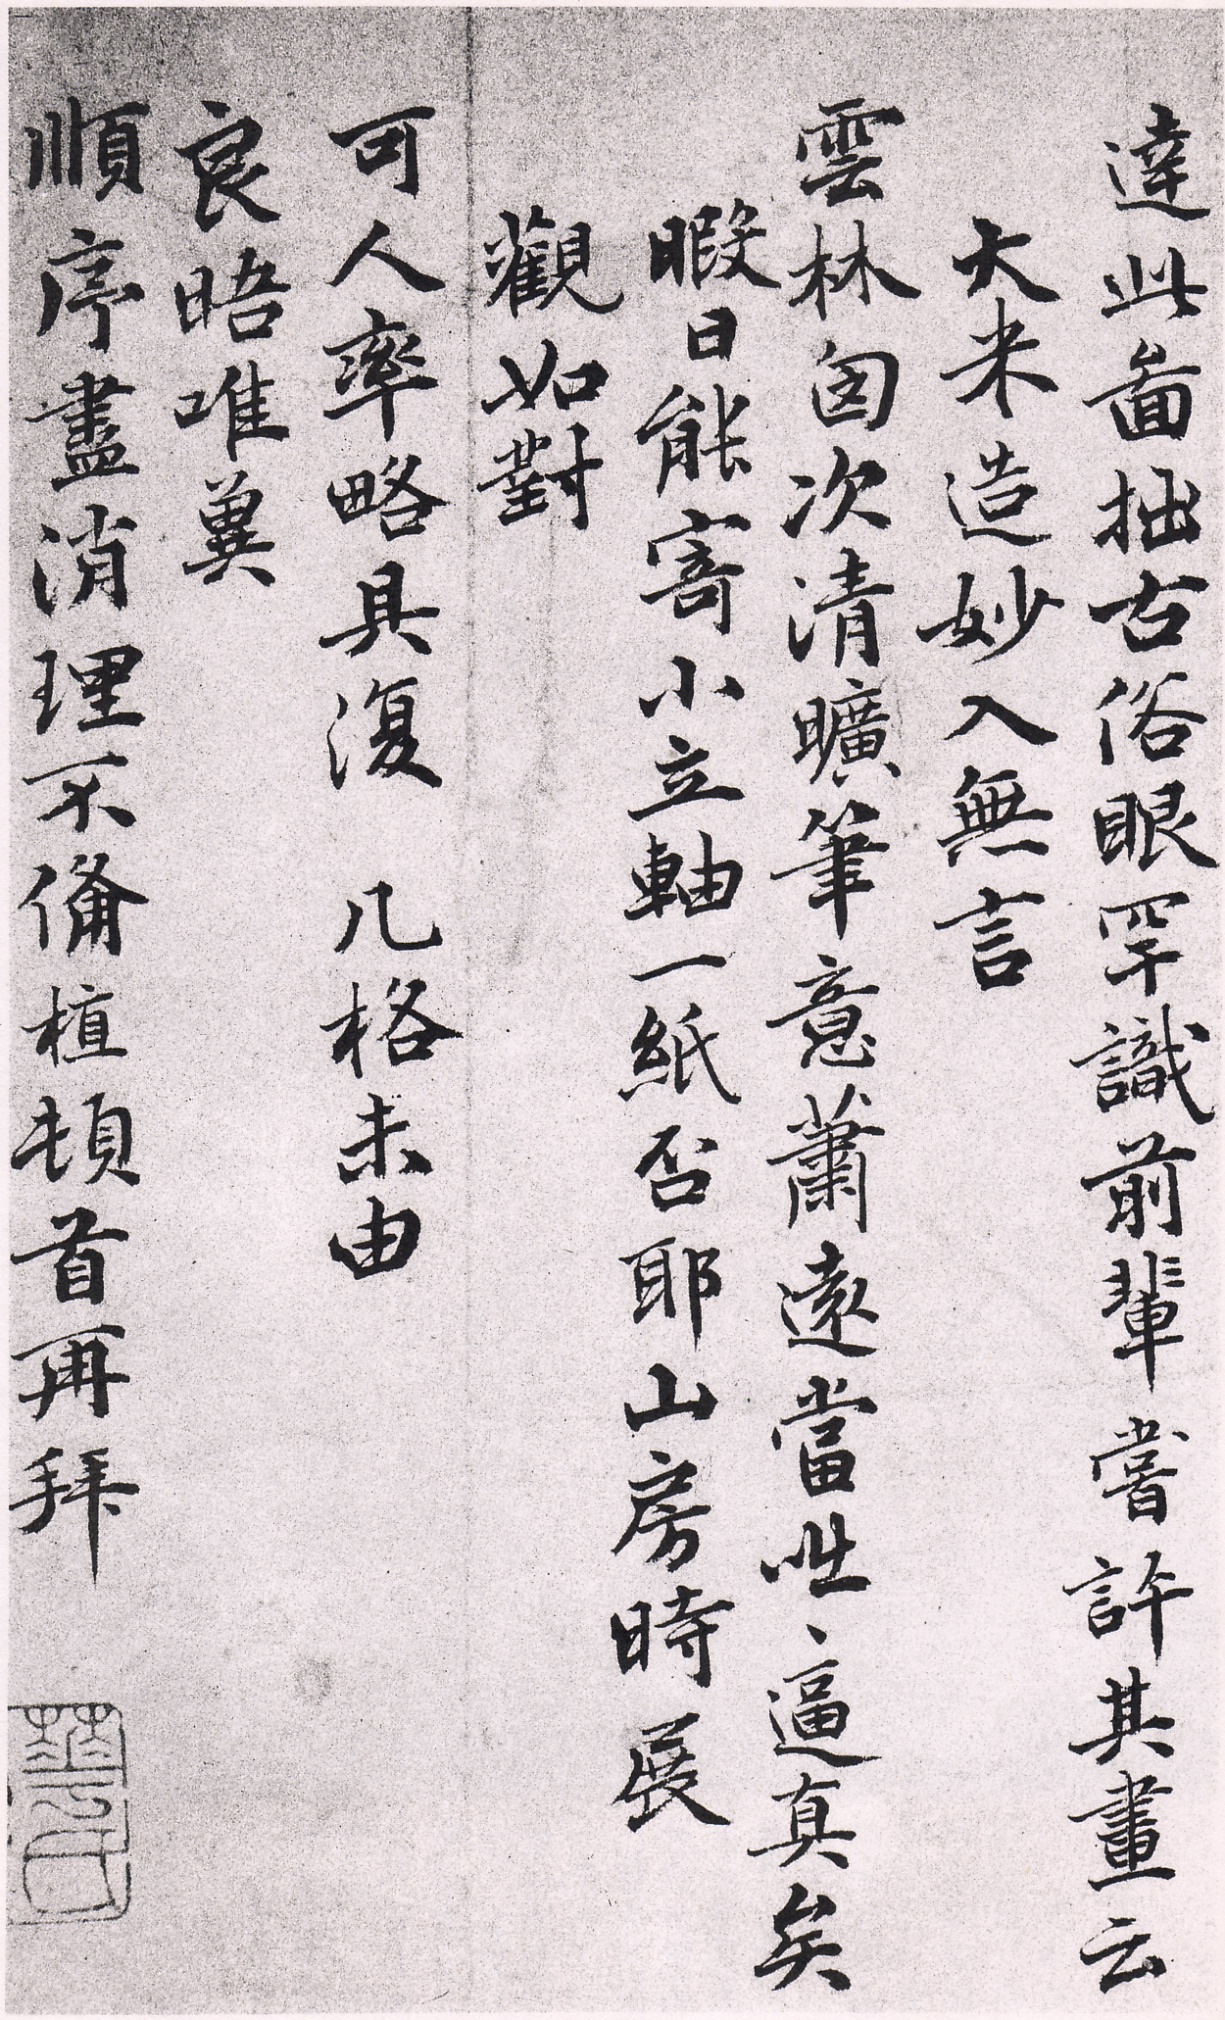 達此啚拙古俗眼罕識前輩嘗許其畫云
大米造妙入無言
雲林囱次清曠筆意蕭遠當咄、逼真矣
暇日能寄小立軸一紙否耶山房時展
觀如對
可人率略具復几格未由
良晤唯冀
順序盡消理不備植頓首再拜
華氏